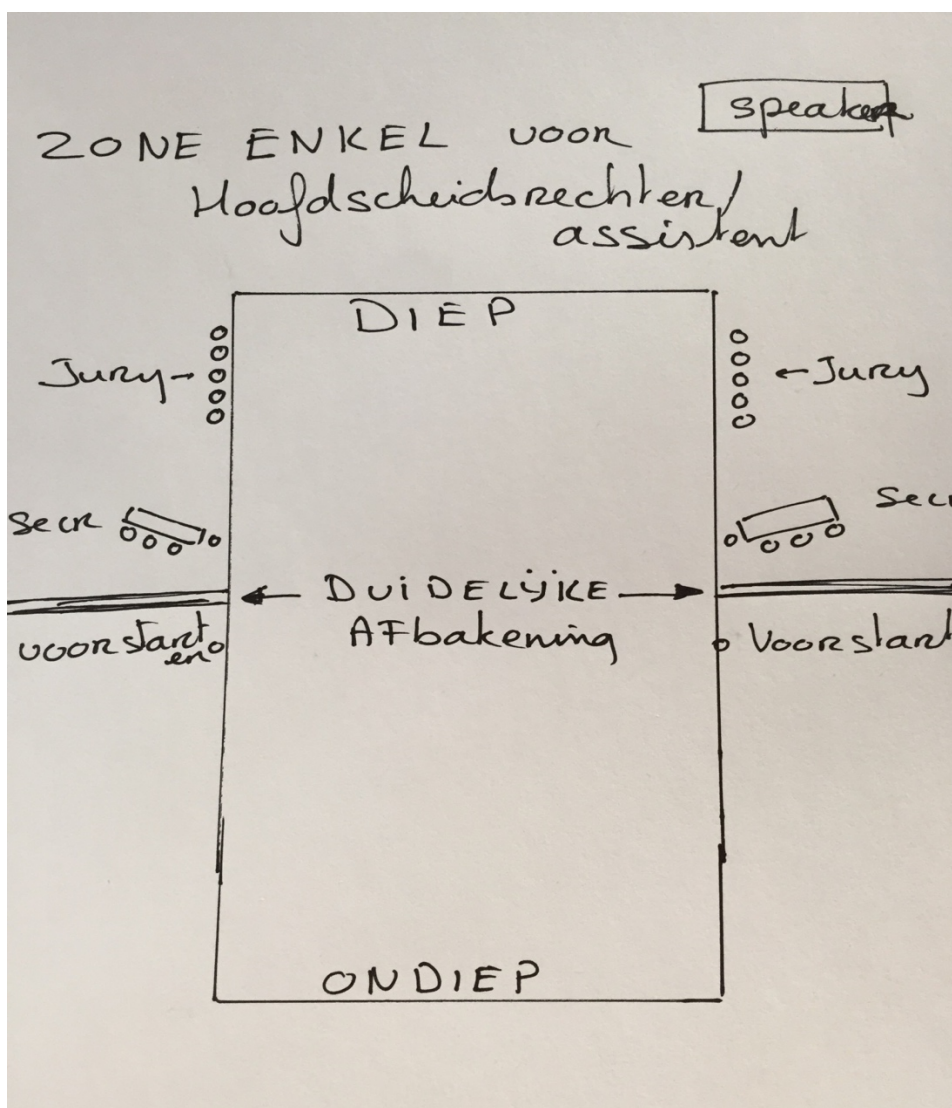 speaker
ZONE ENKEL voor
Hoofdscheidsrechter/
assistent
DIEP
Jury
Jury
Secr
Sec
DUIDELIJKE
AFbakening
voorstart
en
Voorstart
ONDIEP